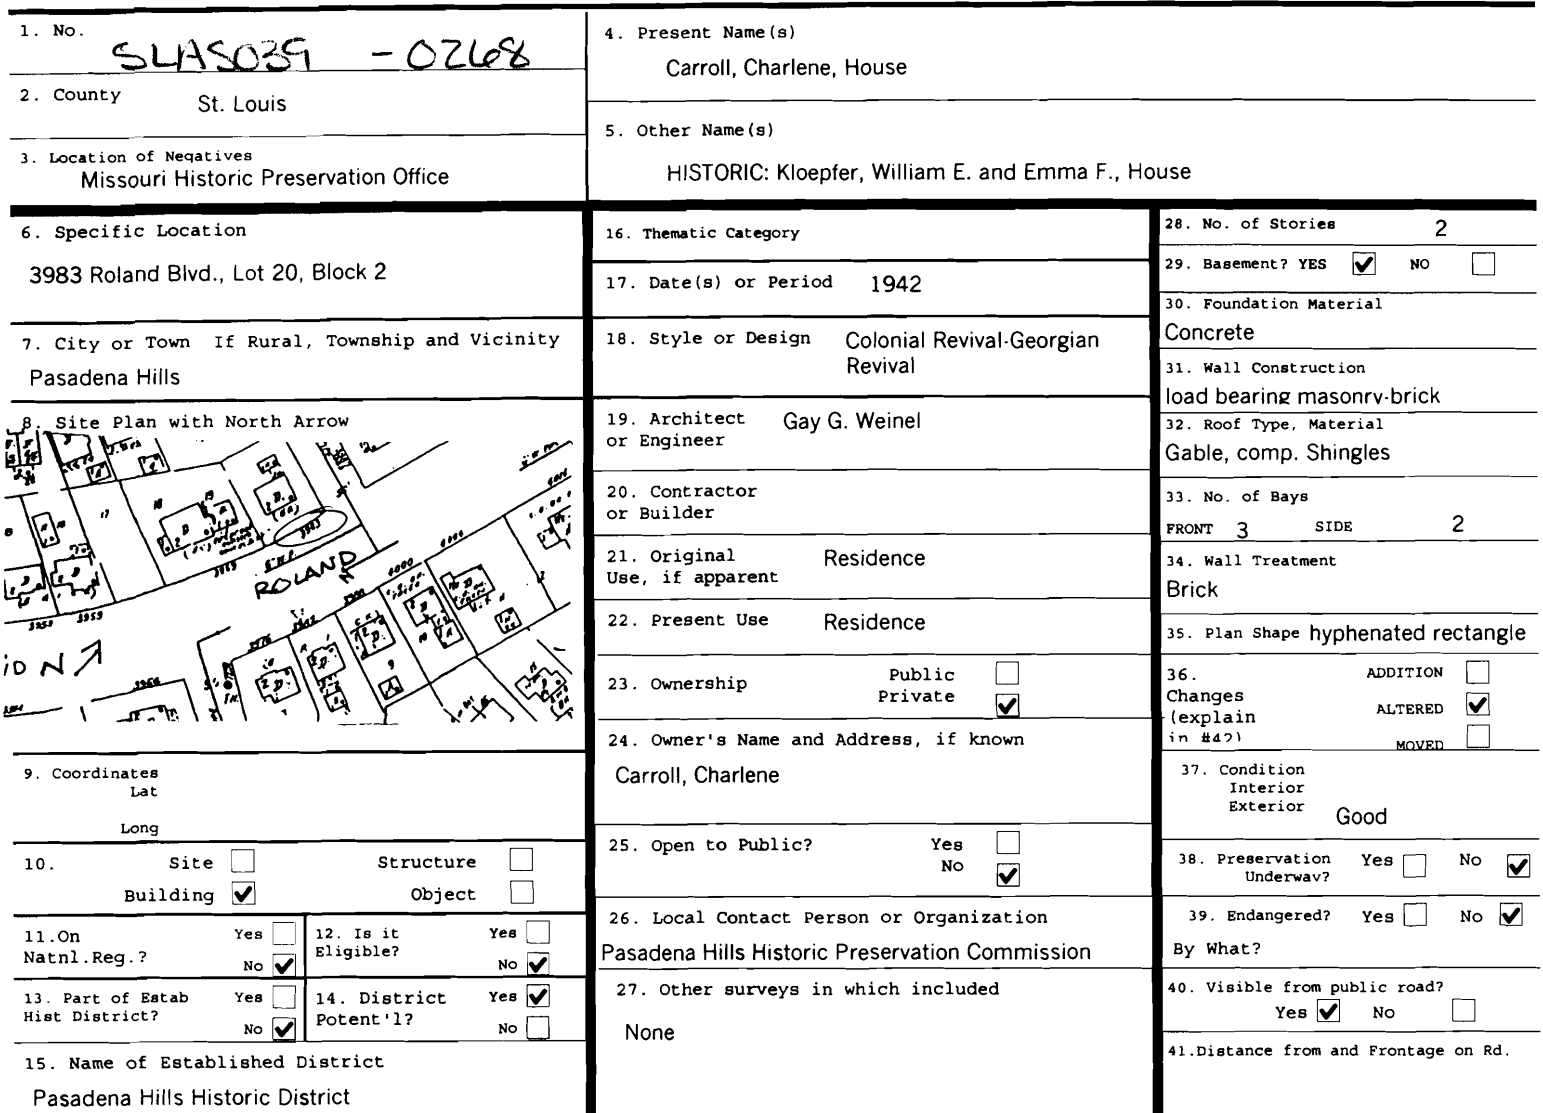 1. No. SLAS039 -0268
2. County St. Louis
3. Location of Negatives
Missouri Historic Preservation Office
4. Present Name(s)
Carroll, Charlene, House
5. Other Name(s)
HISTORIC: Kloepfer, William E. and Emma F., House
6. Specific Location
3983 Roland Blvd., Lot 20, Block 2
7. City or Town If Rural, Township and Vicinity
Pasadena Hills
8. Site Plan with North Arrow
17
18
19
3983
3969
ROLAND
4000
4000
3959
3953
N
9
9. Coordinates
Lat
Long
10. Site Structure
Building ✔ Object
11.On Yes
Natnl.Reg.? No ✔
12. Is it Yes
Eligible? No ✔
13. Part of Estab Yes
Hist District? No ✔
14. District Yes ✔
Potent'l? No
15. Name of Established District
Pasadena Hills Historic District
16. Thematic Category
17. Date(s) or Period 1942
18. Style or Design Colonial Revival-Georgian
Revival
19. Architect Gay G. Weinel
or Engineer
20. Contractor
or Builder
21. Original Residence
Use, if apparent
22. Present Use Residence
23. Ownership Public
Private ✔
24. Owner's Name and Address, if known
Carroll, Charlene
25. Open to Public? Yes
No ✔
26. Local Contact Person or Organization
Pasadena Hills Historic Preservation Commission
27. Other surveys in which included
None
28. No. of Stories 2
29. Basement? YES ✔ NO
30. Foundation Material
Concrete
31. Wall Construction
load bearing masonry-brick
32. Roof Type, Material
Gable, comp. Shingles
33. No. of Bays
FRONT 3 SIDE 2
34. Wall Treatment
Brick
35. Plan Shape hyphenated rectangle
36. ADDITION
Changes
(explain ALTERED ✔
in #42) MOVED
37. Condition
Interior
Exterior Good
38. Preservation Yes No ✔
Underway?
39. Endangered? Yes No ✔
By What?
40. Visible from public road?
Yes ✔ No
41.Distance from and Frontage on Rd.